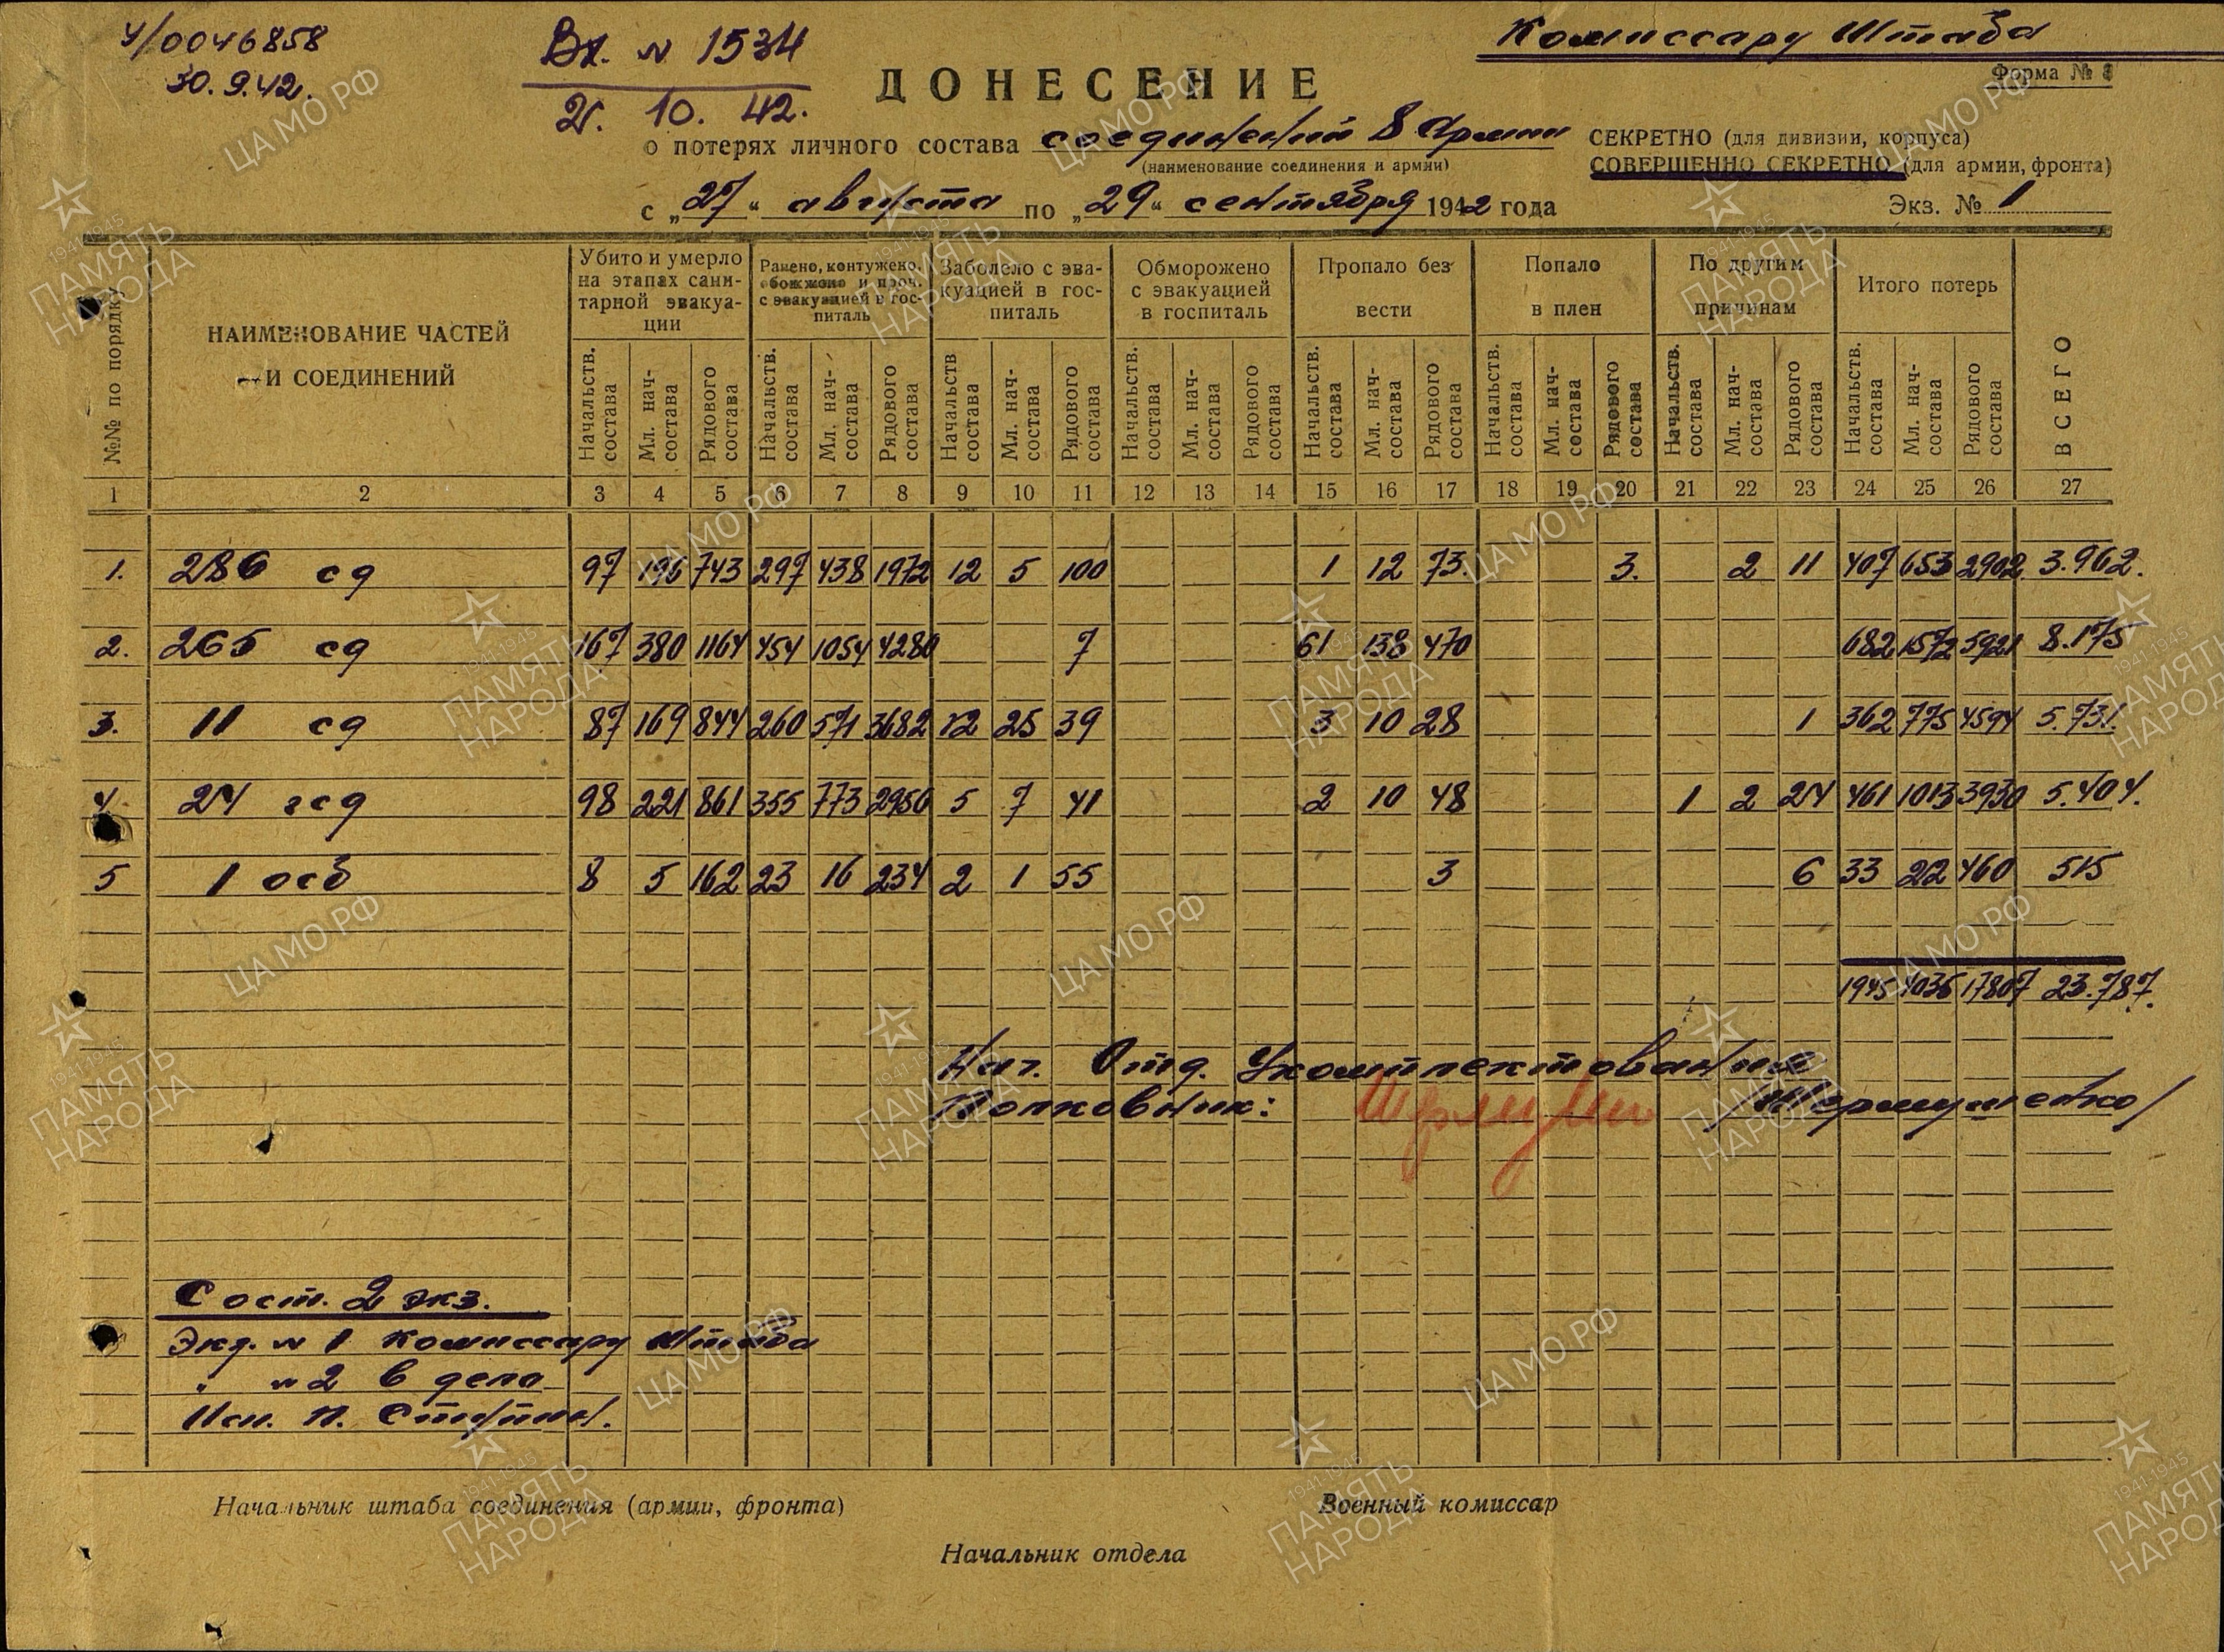 У/0046858
30.9.42.
Вх. № 1534
2. 10. 42.
Комиссару Штаба
Форма №
ДОНЕСЕНИЕ
о потерях личного состава соединений 8 Армии
(наименование соединения и армии)
СЕКРЕТНО (для дивизии, корпуса)
СОВЕРШЕННО СЕКРЕТНО (для армии, фронта)
с „27“ августа по „29“ сентября 1942 года
Экз. № 1
№№ по порядку
НАИМЕНОВАНИЕ ЧАСТЕЙ И СОЕДИНЕНИЙ
Убито и умерло на этапах санитарной эвакуации
Ранено, контужено, обожжено и проч. с эвакуацией в госпиталь
Заболело с эвакуацией в госпиталь
Обморожено с эвакуацией в госпиталь
Пропало без вести
Попало в плен
По другим причинам
Итого потерь
ВСЕГО
Начальств. состава Мл. нач-состава Рядового состава Начальств. состава Мл. нач-состава Рядового состава Начальств состава Мл. нач-состава Рядового состава Начальств. состава Мл. нач-состава Рядового состава Начальств. состава Мл. нач-состава Рядового состава Начальств. состава Мл. нач-состава Рядового состава Начальств. состава Мл. нач-состава Рядового состава Начальств. состава Мл. нач-состава Рядового состава
1 2 3 4 5 6 7 8 9 10 11 12 13 14 15 16 17 18 19 20 21 22 23 24 25 26 27
1. 286 сд 97 196 743 297 438 1972 12 5 100 1 12 73. 3. 2 11 407 653 2902 3.962.
2. 265 сд 167 380 1164 454 1054 4280 7 61 138 470 682 1572 5921 8.175
3. 11 сд 87 169 844 260 571 3682 12 25 39 3 10 28 1 362 775 4594 5.731.
4 24 гсд 98 221 861 355 773 2956 5 7 41 2 10 48 1 2 24 461 1013 3930 5.404.
5 1 осб 8 5 162 23 16 234 2 1 55 3 6 33 22 460 515
1945 4035 17807 23.787.
Нач. Отд. Укомплектования
Полковник: /Шермушенко/
Сост. 2 экз.
Экз. № 1 Комиссару Штаба
" № 2 в дело
Исп. П.
Начальник штаба соединения (армии, фронта)
Военный комиссар
Начальник отдела
ЦАМО РФ
1941-1945
ПАМЯТЬ НАРОДА